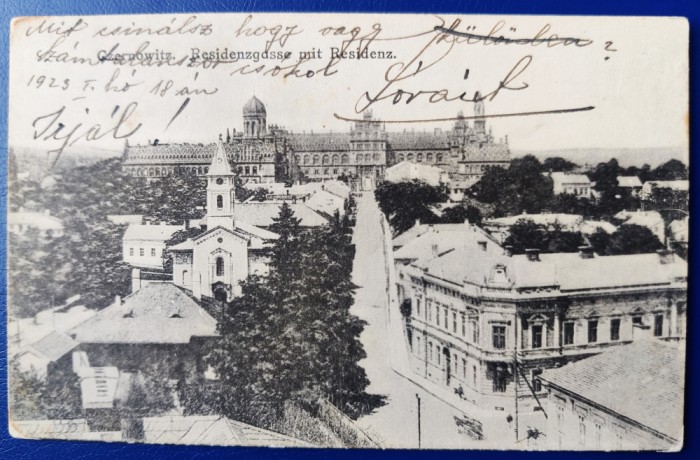 Mit csinálsz hogy vagy küldöden?
Czernowitz. Residenzgasse mit Residenz.
számtalanszor csókol
Lóránt
1923 I. hó 18 án
Írjál!